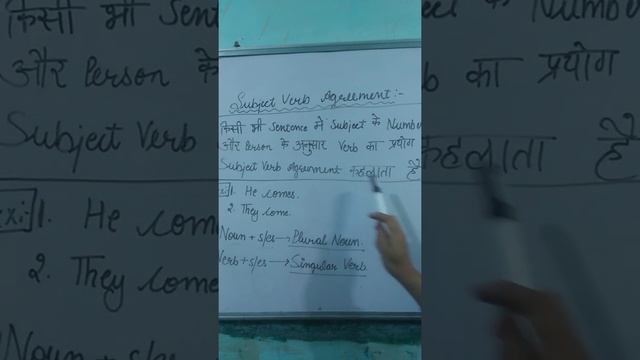 Subject Verb Agreement:-
किसी भी Sentence में Subject के Number
और Person के अनुसार Verb का प्रयोग
Subject Verb Agreement कहलाता है
Ex:- 1. He comes.
2. They come.
Noun + s/es → Plural Noun.
Verb + s/es → Singular Verb.